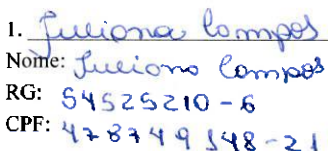 1. Juliana Campos
Nome: Juliana Campos
RG: 54525210-6
CPF: 478749148-21